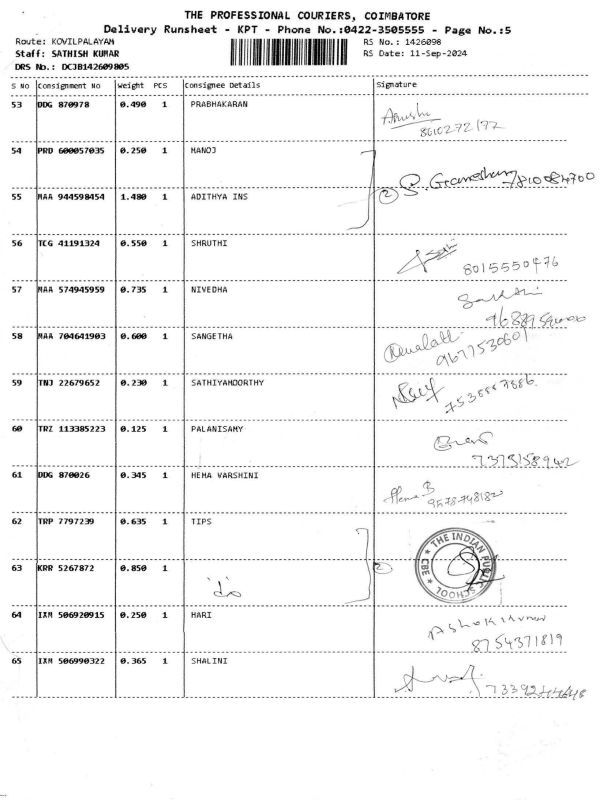 THE PROFESSIONAL COURIERS, COIMBATORE
Delivery Runsheet - KPT - Phone No.:0422-3505555 - Page No.:5
Route: KOVILPALAYAM RS No.: 1426098
Staff: SATHISH KUMAR RS Date: 11-Sep-2024
DRS No.: DCJB142609805
S No Consignment No Weight PCS Consignee Details Signature
53 DDG 870978 0.490 1 PRABHAKARAN
8610272177
54 PRD 600057035 0.250 1 MANOJ
2
55 MAA 944598454 1.480 1 ADITHYA INS
56 TCG 41191324 0.550 1 SHRUTHI
8015550476
57 MAA 574945959 0.735 1 NIVEDHA
58 MAA 704641903 0.600 1 SANGETHA
9677530601
59 TNJ 22679652 0.230 1 SATHIYAMOORTHY
60 TRZ 113385223 0.125 1 PALANISAMY
61 DDG 870026 0.345 1 HEMA VARSHINI
Hema B
9578748182
62 TRP 7797239 0.635 1 TIPS
THE INDIAN PUBLIC SCHOOL CBE
63 KRR 5267872 0.850 1
2
64 IXM 506920915 0.250 1 HARI
Ashokkumar
8754371819
65 IXM 506990322 0.365 1 SHALINI